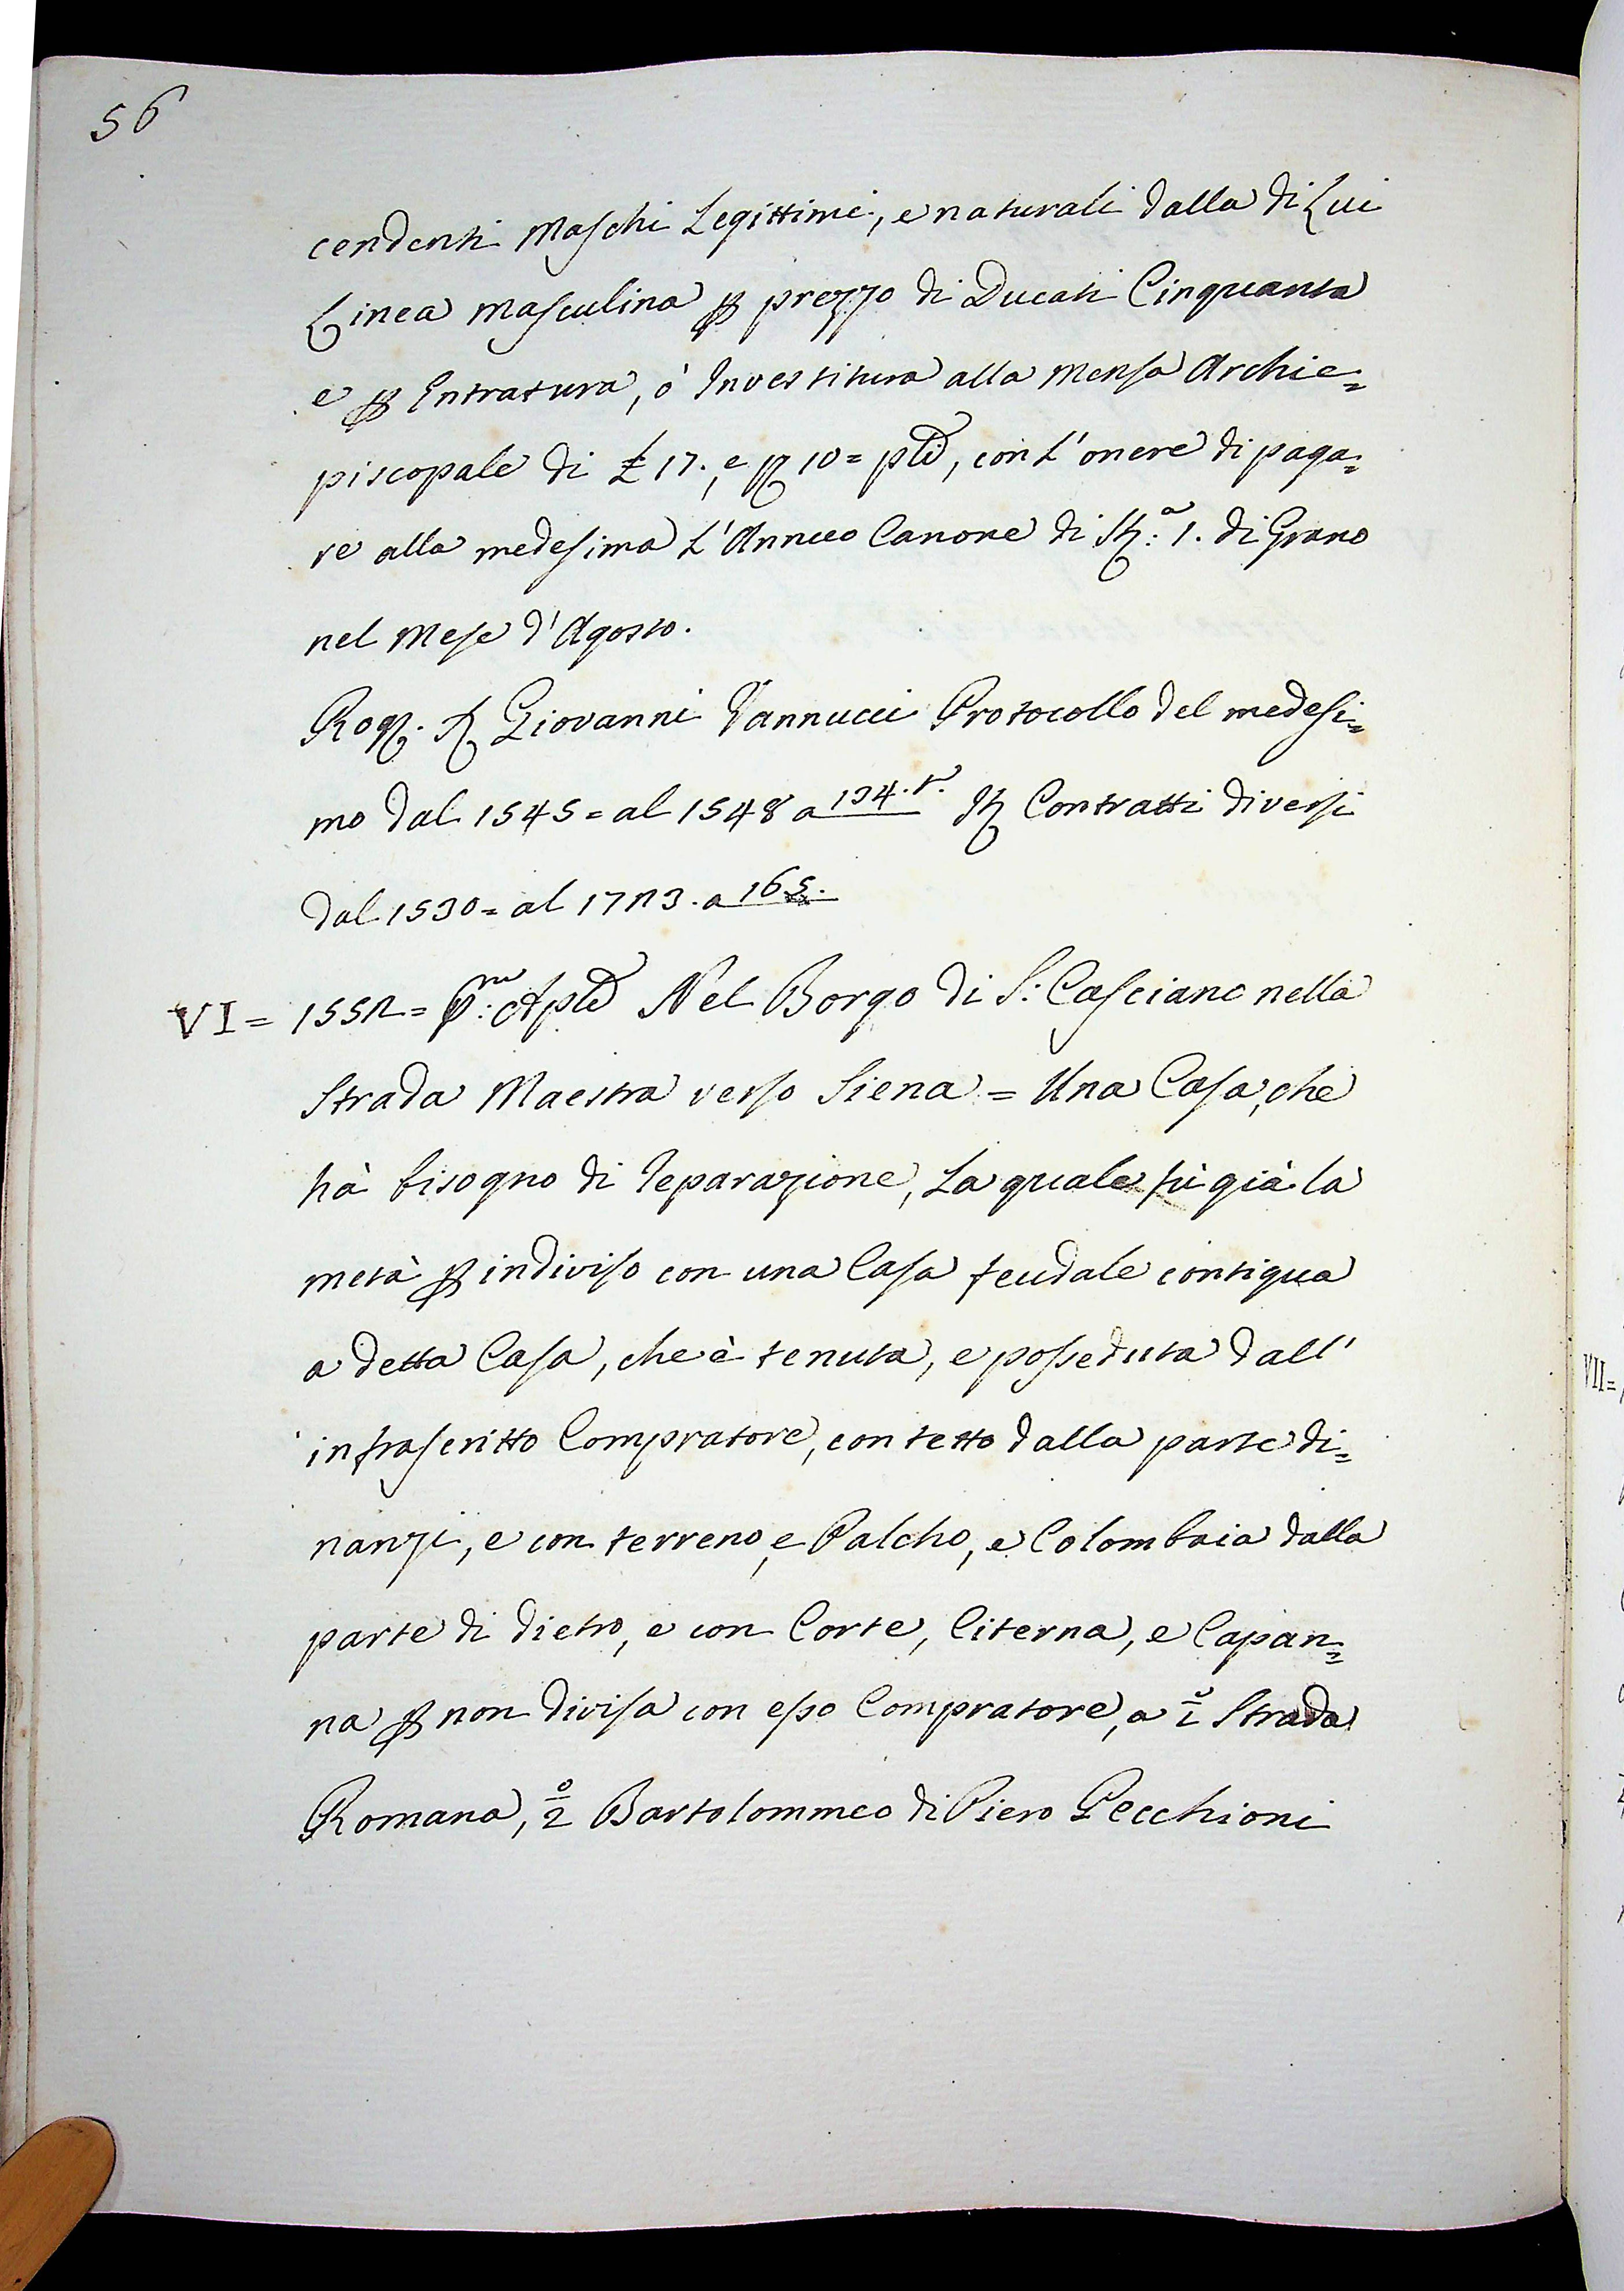 56
cendenti Maschi Legittimi, e naturali dalla di Lui
Linea Masculina ꝑ prezzo di Ducati Cinquanta
e ꝑ Entratura, ò Investitura alla Mensa Archie=
piscopale di £ 17., e 10= pld, con L'onere di paga=
re alla medesima L'Annuo Canone di Sta: 1. di Grano
nel Mese d'Agosto.
Rog. Giovanni Vannucci Protocollo del medesi=
mo dal 1545= al 1548 a 134.t. Contratti diversi
dal 1530= al 1723. a 165.
VI= 1552= pmo: Aple Nel Borgo di S: Casciano nella
Strada Maestra verso Siena = Una Casa, che
hà bisogno di reparazione, La quale fù già la
metà ꝑ indiviso con una Casa feudale contigua
a detta Casa, che è tenuta, e posseduta dall'
infrascritto Compratore, con tetto dalla parte di=
nanzi, e con terreno, e Palcho, e Colombaia dalla
parte di dietro, e con Corte, Citerna, e Capan=
na ꝑ non divisa con esso Compratore, a 1° Strada
Romana, 2° Bartolommeo di Piero Gecchioni
VII=